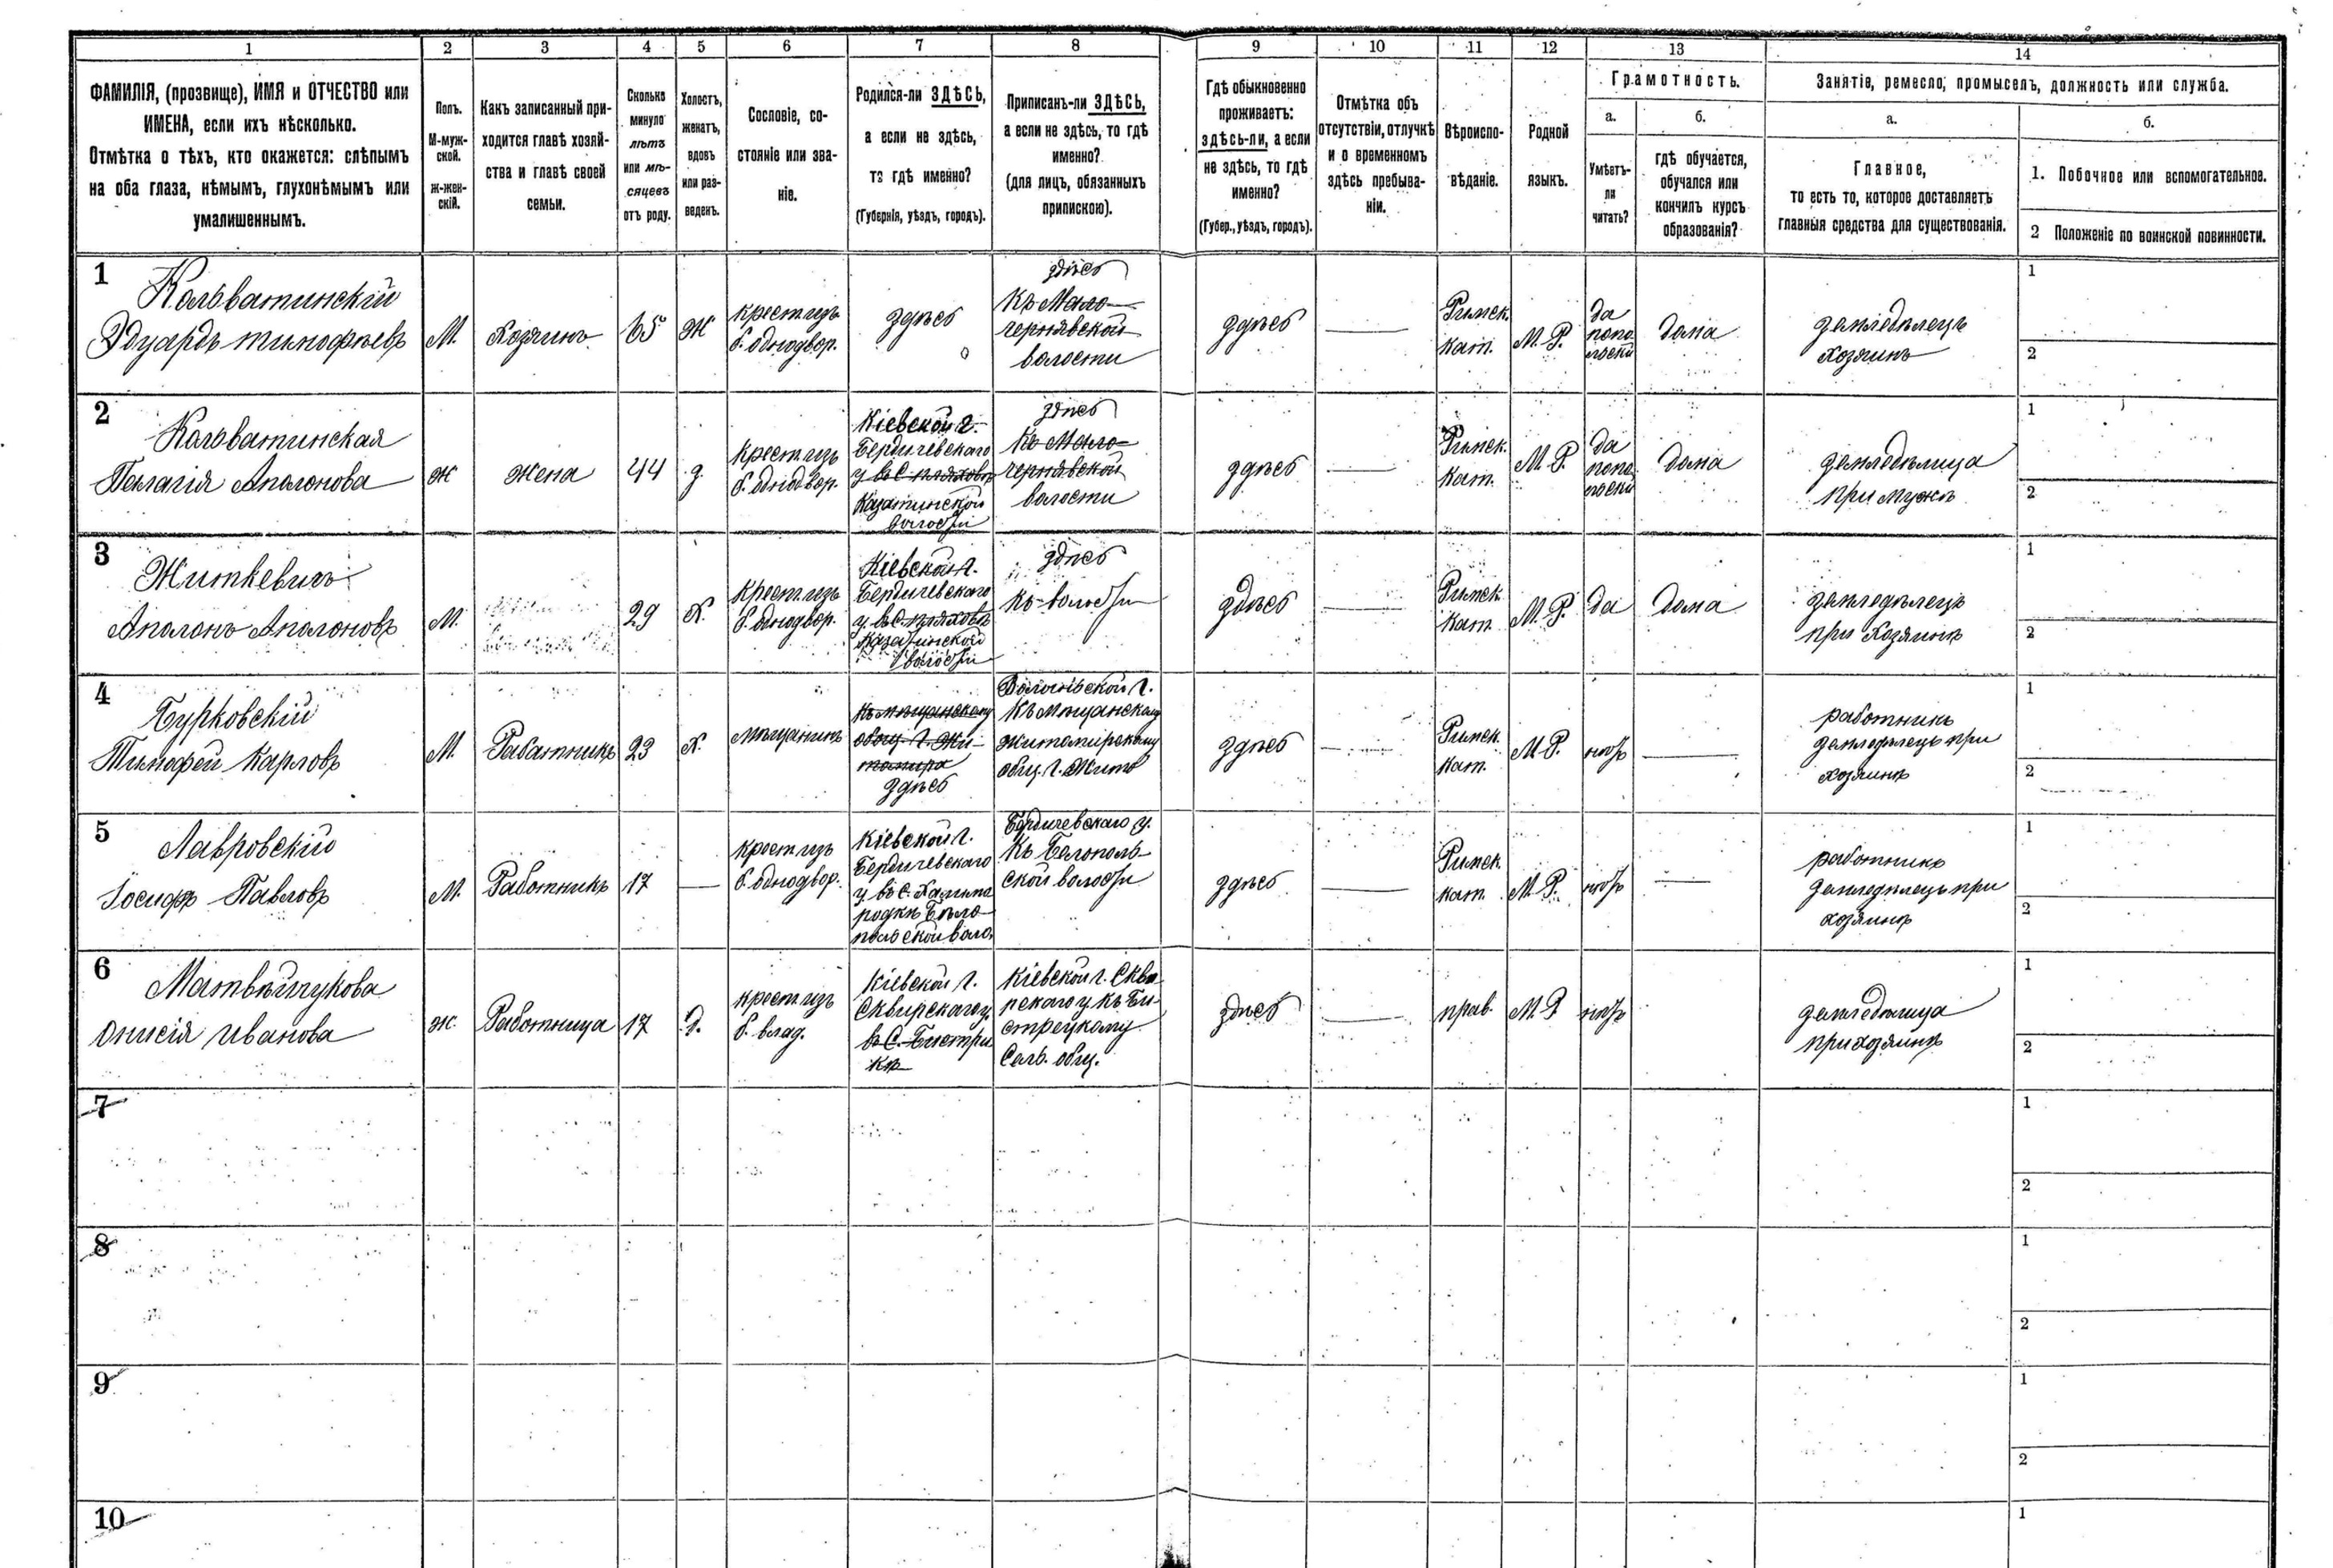 1 2 3 4 5 6 7 8 9 10 11 12 13 14
ФАМИЛІЯ, (прозвище), ИМЯ и ОТЧЕСТВО или
ИМЕНА, если ихъ нѣсколько.
Отмѣтка о тѣхъ, кто окажется: слѣпымъ
на оба глаза, нѣмымъ, глухонѣмымъ или
умалишеннымъ.
Полъ.
М-муж-
ской.
ж-жен-
скій.
Какъ записанный при-
ходится главѣ хозяй-
ства и главѣ своей
семьи.
Сколько
минуло
лѣтъ
или мѣ-
сяцевъ
отъ роду.
Холостъ,
женатъ,
вдовъ
или раз-
веденъ.
Сословіе, со-
стояніе или зва-
ніе.
Родился-ли ЗДѢСЬ,
а если не здѣсь,
то гдѣ именно?
(Губернія, уѣздъ, городъ).
Приписанъ-ли ЗДѢСЬ,
а если не здѣсь, то гдѣ
именно?
(для лицъ, обязанныхъ
припискою).
Гдѣ обыкновенно
проживаетъ:
здѣсь-ли, а если
не здѣсь, то гдѣ
именно?
(Губер., уѣздъ, городъ).
Отмѣтка объ
отсутствіи, отлучкѣ
и о временномъ
здѣсь пребыва-
ніи.
Вѣроиспо-
вѣданіе.
Родной
языкъ.
Грамотность.
а.
Умѣетъ-
ли
читать?
б.
гдѣ обучается,
обучался или
кончилъ курсъ
образованія?
Занятіе, ремесло, промыселъ, должность или служба.
а.
Главное,
то есть то, которое доставляетъ
главныя средства для существованія.
б.
1. Побочное или вспомогательное.
2 Положеніе по воинской повинности.
1
Кольватинскій
Эдуардъ тимофѣевъ
М.
Хозяинъ
65
Ж
крест изъ
б. однодвор.
здѣсь
здѣсь
Къ Мало-
чернявской
волости
здѣсь
Римск.
кат.
М. Р.
да
попо
льски
дома
земледѣлецъ
хозяинъ
1
2
2
Кольватинская
Палагія Аполонова
ж
жена
44
з.
крест изъ
б. однодвор.
Кіевской г.
Бердичевскаго
у въ С.
Казатинской
волости
здѣсь
Къ Мало-
чернявской
волости
здѣсь
Римск.
кат.
М. Р.
да
попо
льски
дома
земледѣлица
при мужѣ
1
2
3
Житкевичъ
Аполонъ Аполоновъ
М.
29
Х.
крест изъ
б. однодвор.
Кіевской г.
Бердичевскаго
у въ С.
Казатинской
волости
здѣсь
къ волости
здѣсь
Римск
кат.
М. Р.
да
дома
земледѣлецъ
при хозяинѣ
1
2
4
Бурковскій
Тимофей Карловъ
М.
Работникъ
23
Х.
мѣщанинъ
Къ мѣщанскому
общ. г. Жи-
томира
здѣсь
Волынской г.
Къ мѣщанскому
житомирскому
общ. г. Жито
здѣсь
Римск.
кат.
М. Р.
нѣтъ
работникъ
земледѣлецъ при
хозяинѣ
1
2
5
Лавровскій
Іосифъ Павловъ
М.
Работникъ
17
крест изъ
б. однодвор.
Кіевской г.
Бердичевскаго
у въ С.
родкѣ Бѣло-
польской воло.
Бердичевскаго у.
Къ Белополь-
ской волости
здѣсь
Римск.
кат.
М. Р.
нѣтъ
работникъ
земледѣлецъ при
хозяинѣ
1
2
6
Матвѣйчукова
Онисія Иванова
ж.
Работница
17
д.
крест изъ
б. влад.
Кіевской г.
Сквирскаго у.
въ С. Бистри
кѣ
Кіевской г. Скви
рскаго у къ Би-
стрецкому
Сель. общ.
здѣсь
прав.
М. Р
нѣтъ
земледѣлица
при хозяинѣ
1
2
7
1
2
8
1
2
9
1
2
10
1